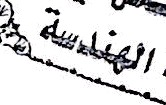 الهندسة